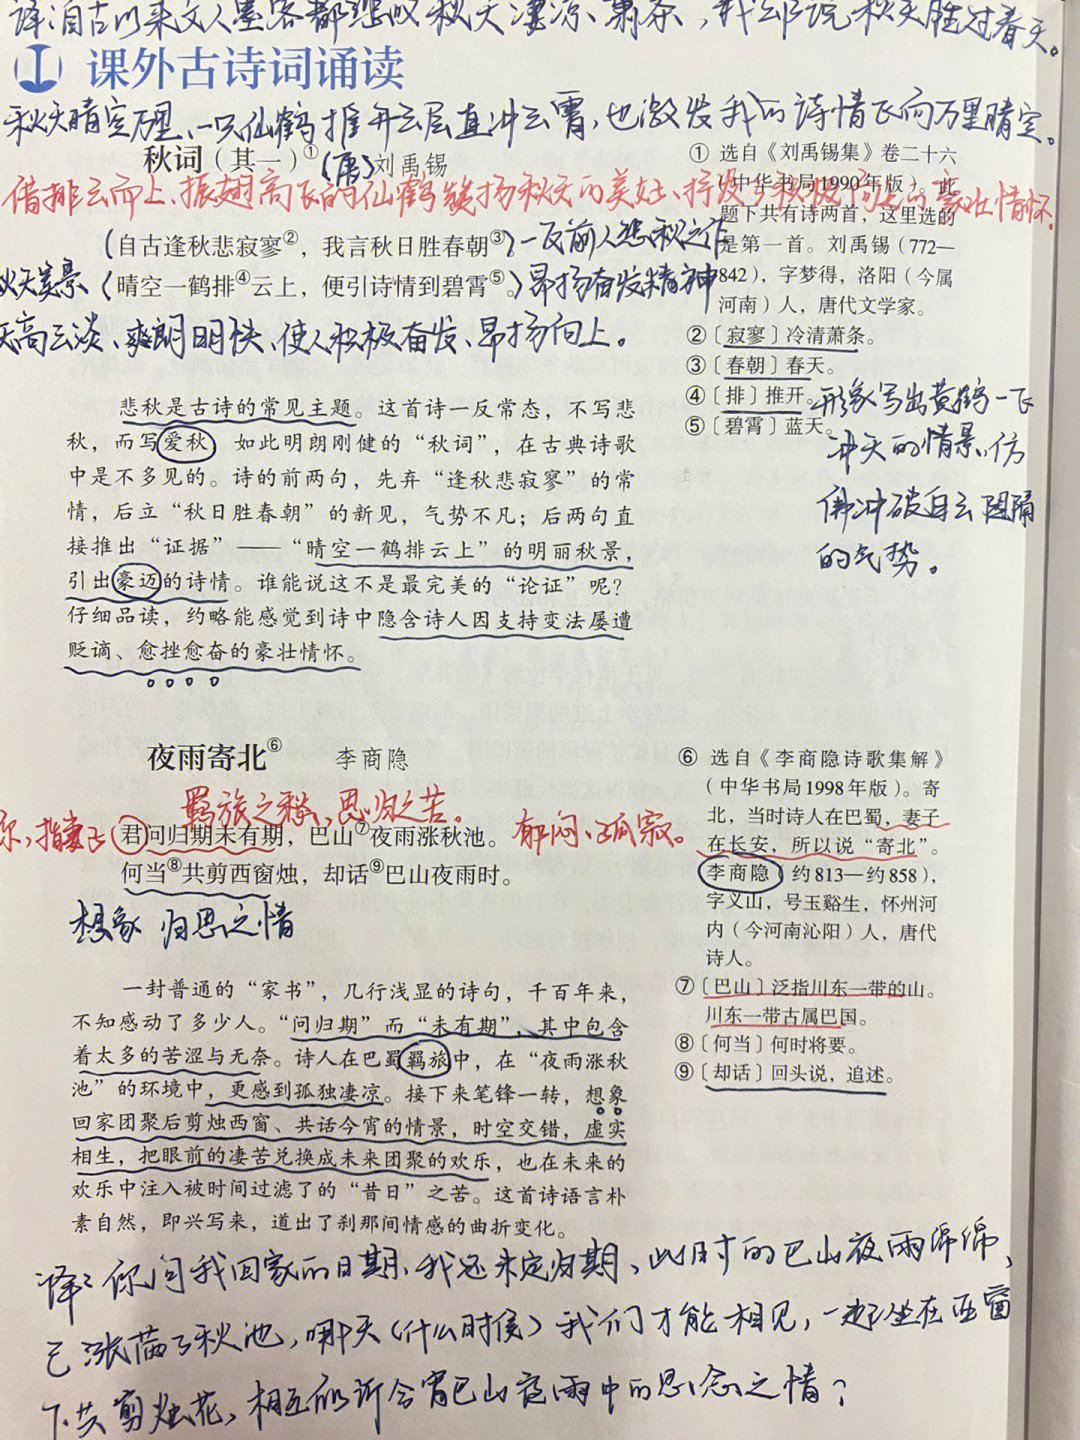 译:自古以来文人墨客都悲叹秋天凄凉、萧条,我却说秋天胜过春天。
课外古诗词诵读
秋天晴空万里、一只仙鹤推开云层直冲云霄,也激发我的诗情飞向万里晴空。
秋词(其一)① (唐)刘禹锡
借排云而上、振翅高飞的仙鹤赞扬秋天的美好、抒发了积极向上的豪壮情怀.
(自古逢秋悲寂寥②,我言秋日胜春朝③)一反前人悲秋之作
秋天美景(晴空一鹤排④云上,便引诗情到碧霄⑤。)昂扬奋发精神
天高云淡、爽朗明快、使人积极奋发、昂扬向上。
悲秋是古诗的常见主题。这首诗一反常态,不写悲
秋,而写爱秋 如此明朗刚健的“秋词”,在古典诗歌
中是不多见的。诗的前两句,先弃“逢秋悲寂寥”的常
情,后立“秋日胜春朝”的新见,气势不凡;后两句直
接推出“证据”——“晴空一鹤排云上”的明丽秋景,
引出豪迈的诗情。谁能说这不是最完美的“论证”呢?
仔细品读,约略能感觉到诗中隐含诗人因支持变法屡遭
贬谪、愈挫愈奋的豪壮情怀。
① 选自《刘禹锡集》卷二十六
(中华书局1990年版)。此
题下共有诗两首,这里选的
是第一首。刘禹锡(772—
842),字梦得,洛阳(今属
河南)人,唐代文学家。
②〔寂寥〕冷清萧条。
③〔春朝〕春天。
④〔排〕推开。
⑤〔碧霄〕蓝天。
形象写出黄鹤一飞
冲天的情景、仿
佛冲破白云阻隔
的气势。
夜雨寄北⑥ 李商隐
羁旅之愁、思归之苦。
你,指妻子(君问归期未有期,巴山⑦夜雨涨秋池。 郁闷、孤寂。
何当⑧共剪西窗烛,却话⑨巴山夜雨时。
想象 归思之情
一封普通的“家书”,几行浅显的诗句,千百年来,
不知感动了多少人。“问归期”而“未有期”,其中包含
着太多的苦涩与无奈。诗人在巴蜀羁旅中,在“夜雨涨秋
池”的环境中,更感到孤独凄凉。接下来笔锋一转,想象
回家团聚后剪烛西窗、共话今宵的情景,时空交错,虚实
相生,把眼前的凄苦兑换成未来团聚的欢乐,也在未来的
欢乐中注入被时间过滤了的“昔日”之苦。这首诗语言朴
素自然,即兴写来,道出了刹那间情感的曲折变化。
⑥ 选自《李商隐诗歌集解》
(中华书局1998年版)。寄
北,当时诗人在巴蜀,妻子
在长安,所以说“寄北”。
李商隐(约813—约858),
字义山,号玉谿生,怀州河
内(今河南沁阳)人,唐代
诗人。
⑦〔巴山〕泛指川东一带的山。
川东一带古属巴国。
⑧〔何当〕何时将要。
⑨〔却话〕回头说,追述。
译:你问我回家的日期、我还未定归期,此时的巴山夜雨绵绵,
已涨满了秋池,哪天(什么时候)我们才能相见,一起坐在西窗
下、共剪烛花,相互倾诉今宵巴山夜雨中的思念之情?